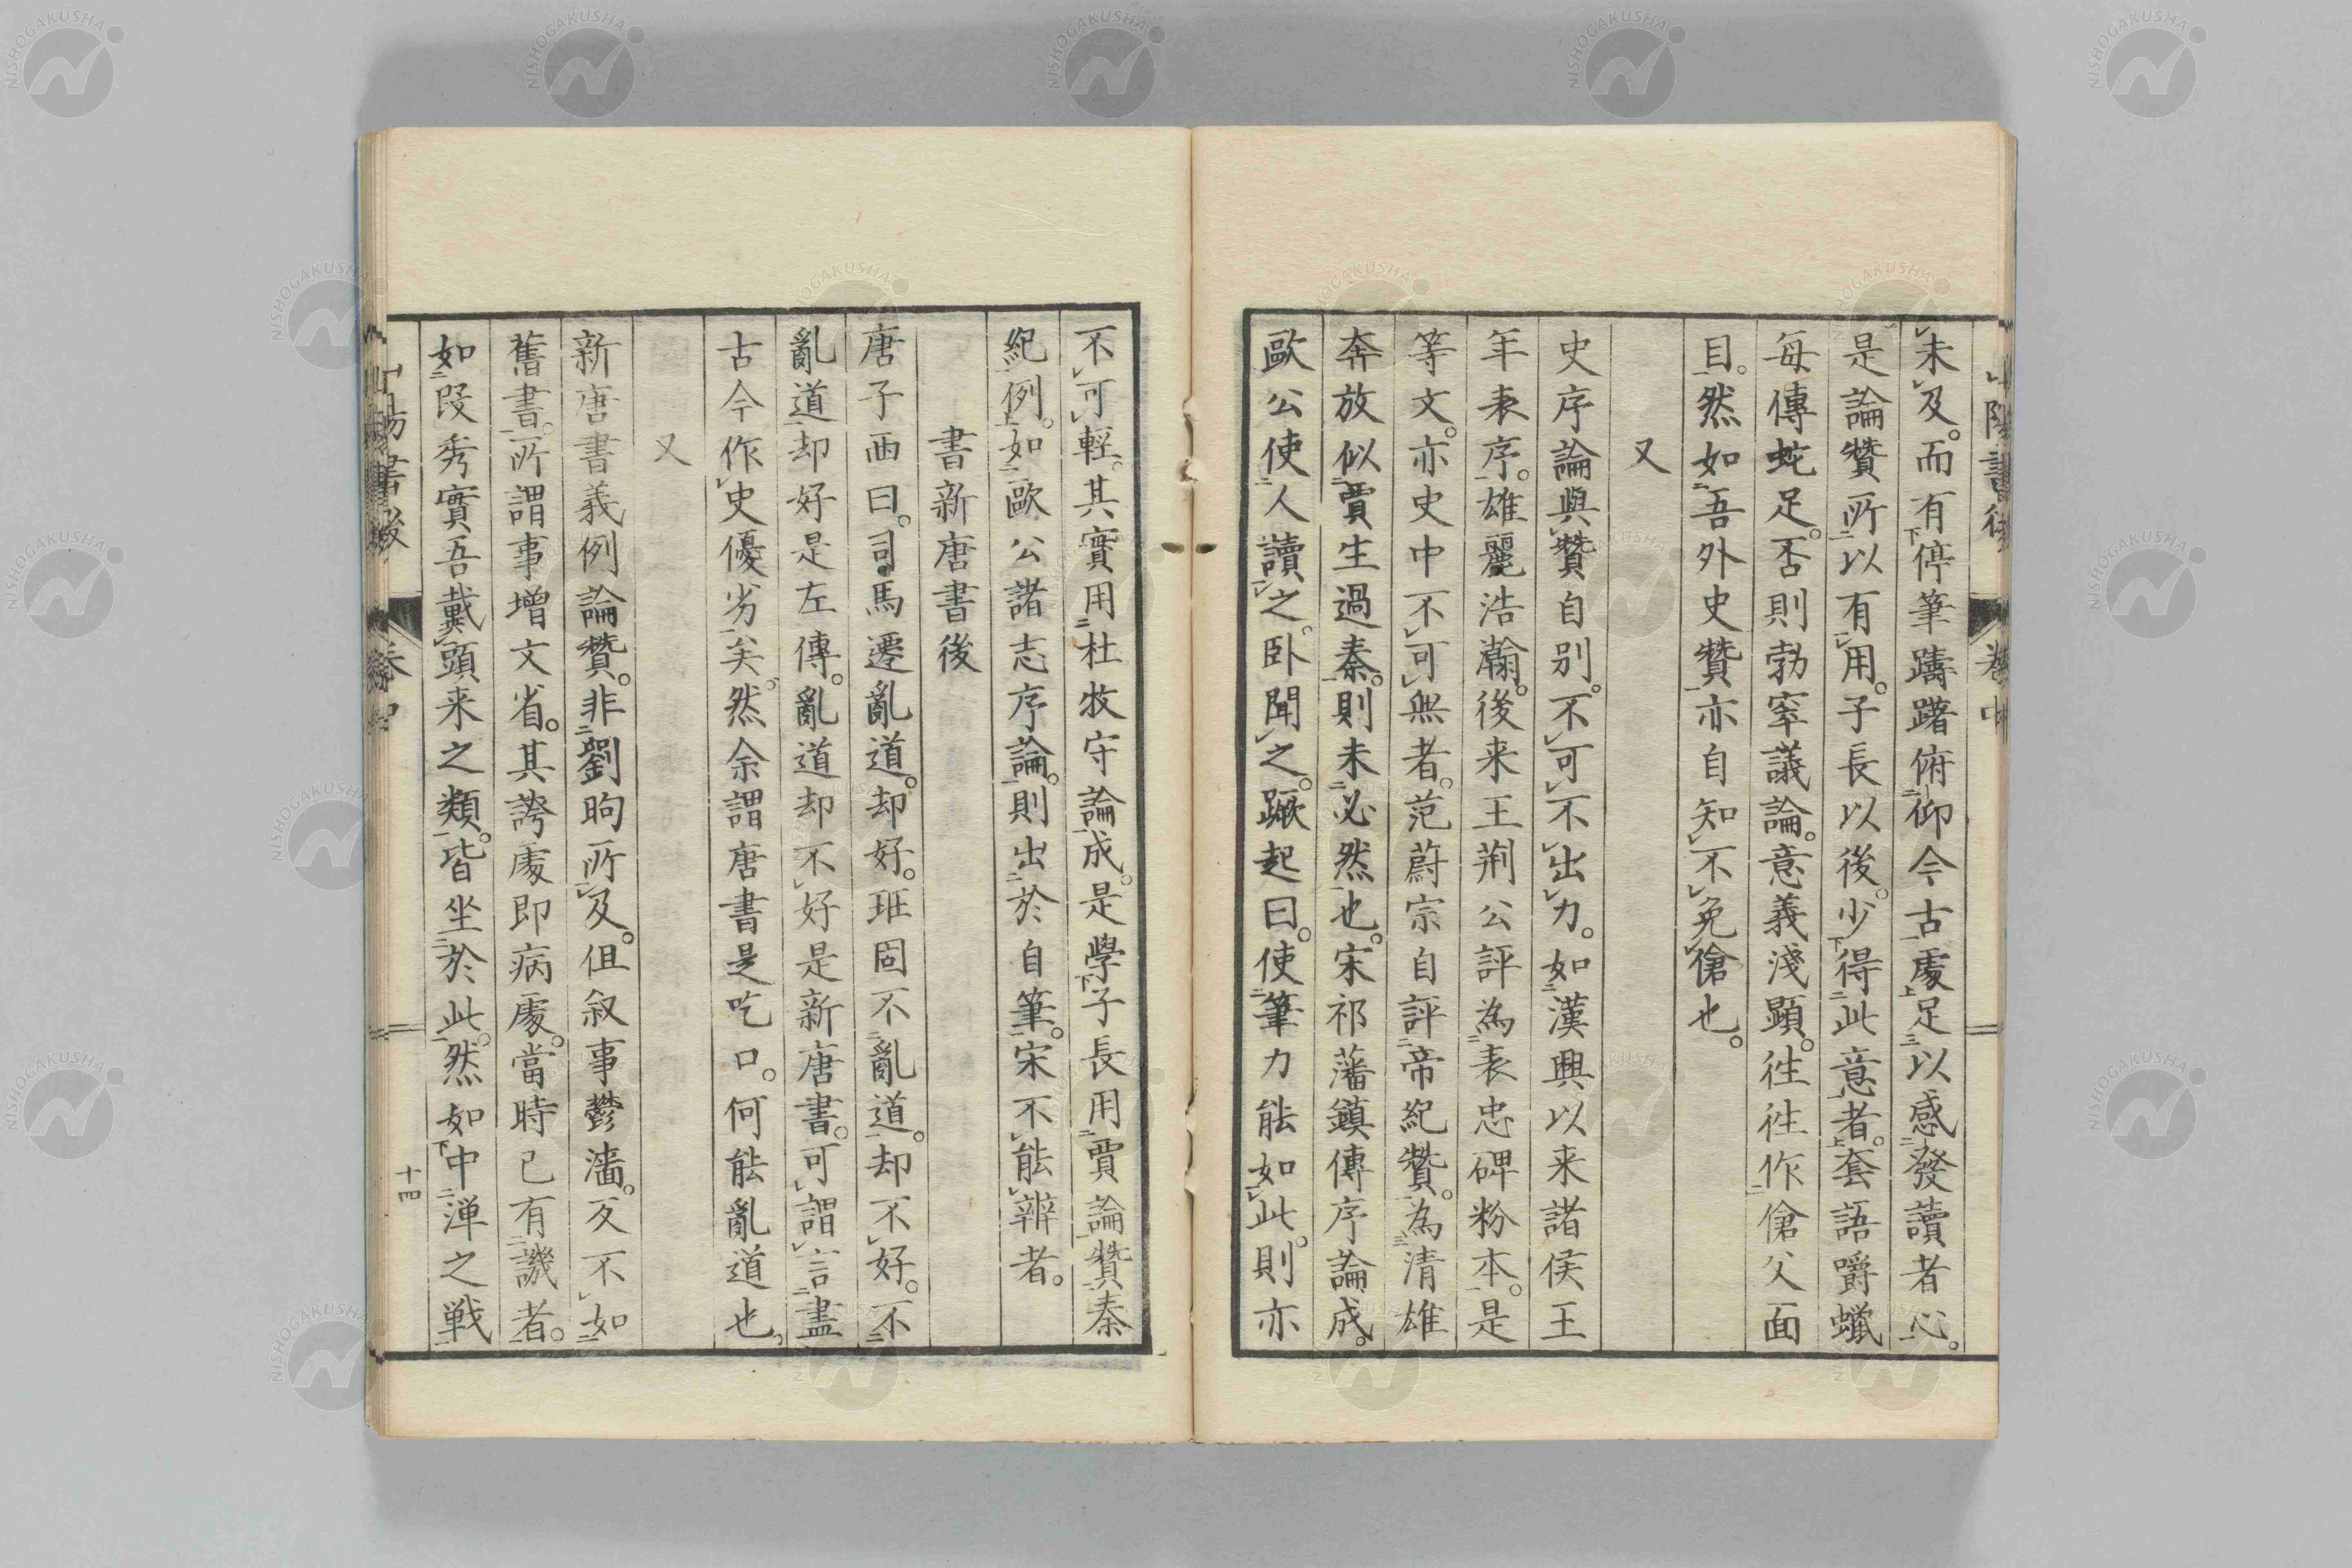 未及。而有停筆躊躇俯仰今古處足以感發讀者心。
是論贊所以有用。子長以後。少得此意者。套語嚼蠟
每傳蛇足。否則勃窣議論。意義淺顕。徃徃作傖父面
目。然如吾外史贊亦自知不免傖也。
又
史序論與贊自別。不可不出力。如漢興以来諸侯王
年表序。雄麗浩瀚。後来王荆公評為表忠碑粉本。是
等文。亦史中不可無者。范蔚宗自評帝紀贊。為清雄
奔放似賈生過秦。則未必然也。宋祁藩鎮傳序論成。
歐公使人讀之。臥聞之。蹶起曰。使筆力能如此。則亦
不可輕。其實用杜牧守論成。是學子長用賈論贊秦
紀例。如歐公諸志序論。則出於自筆。宋不能辨者。
書新唐書後
唐子西曰。司馬遷亂道。却好。班固不亂道。却不好。不
亂道却好是左傳。亂道却不好是新唐書。可謂言盡
古今作史優劣矣。然余謂唐書是吃口。何能亂道也。
又
新唐書義例論贊。非劉昫所及。但叙事鬱濇。反不如
舊書。所謂事增文省。其誇處即病處。當時已有譏者。
如段秀實吾戴頭来之類。皆坐於此。然如中渖之戦
山陽書後
卷中
十四